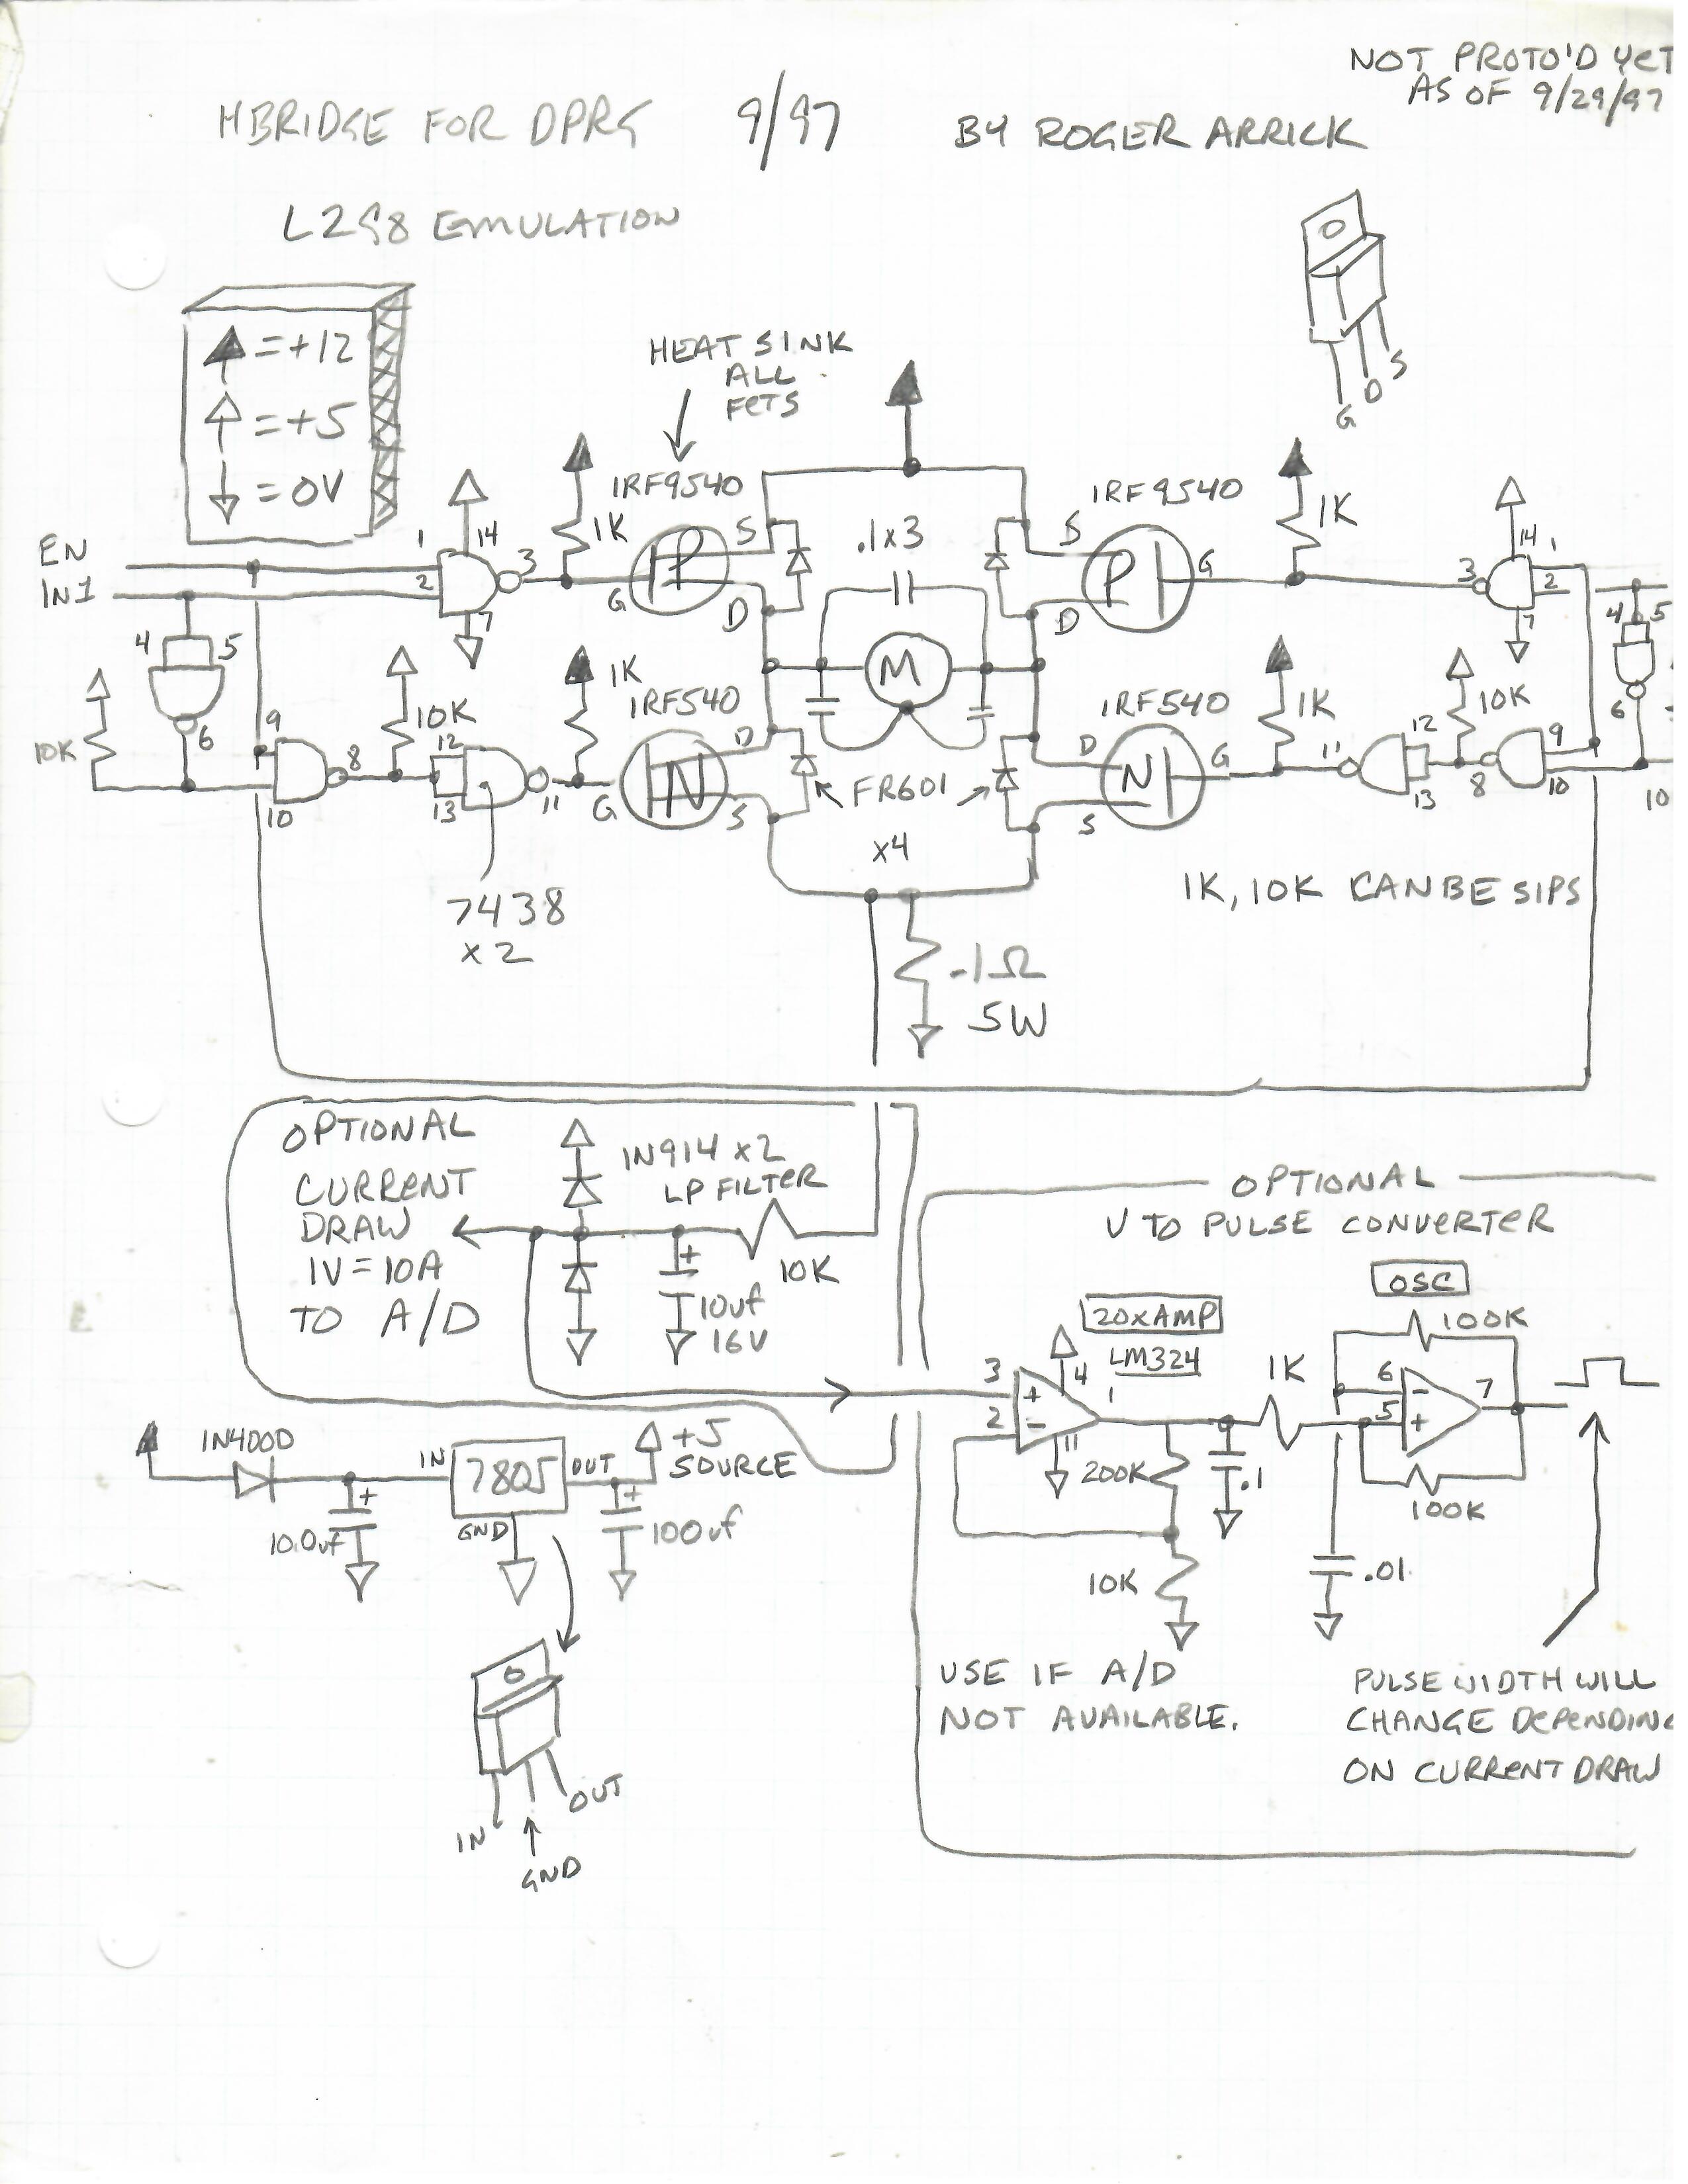 NOT PROTO'D YET
AS OF 9/29/97
HBRIDGE FOR DPRG 9/97 BY ROGER ARRICK
L298 EMULATION
=+12
=+5
=0V
HEAT SINK
ALL
FETS
G D S
EN
IN1
1 2 14 3 7
1K
IRF9540
G P S D
.1x3
IRF9540
S P G D
1K
3 14 1 2 7
4 5 6
10K
9 10 8
10K
12 13 11
1K
IRF540
G N D S
M
IRF540
D N G S
1K
11 12 13
10K
8 9 10
4 5 6
10
FR601
x4
7438
x2
1K, 10K CAN BE SIPS
.1Ω
5W
OPTIONAL
CURRENT
DRAW
1V=10A
TO A/D
1N914 x2
LP FILTER
+
10uf
16V
10K
OPTIONAL
V TO PULSE CONVERTER
20xAMP
LM324
3 + 4 1
2 - 11
200K
.1
10K
1K
OSC
100K
6 - 7
5 +
100K
.01
1N400D
+
100uf
IN 7805 OUT
GND
+
100uf
+5
SOURCE
IN
GND
OUT
USE IF A/D
NOT AVAILABLE.
PULSE WIDTH WILL
CHANGE DEPENDING
ON CURRENT DRAW